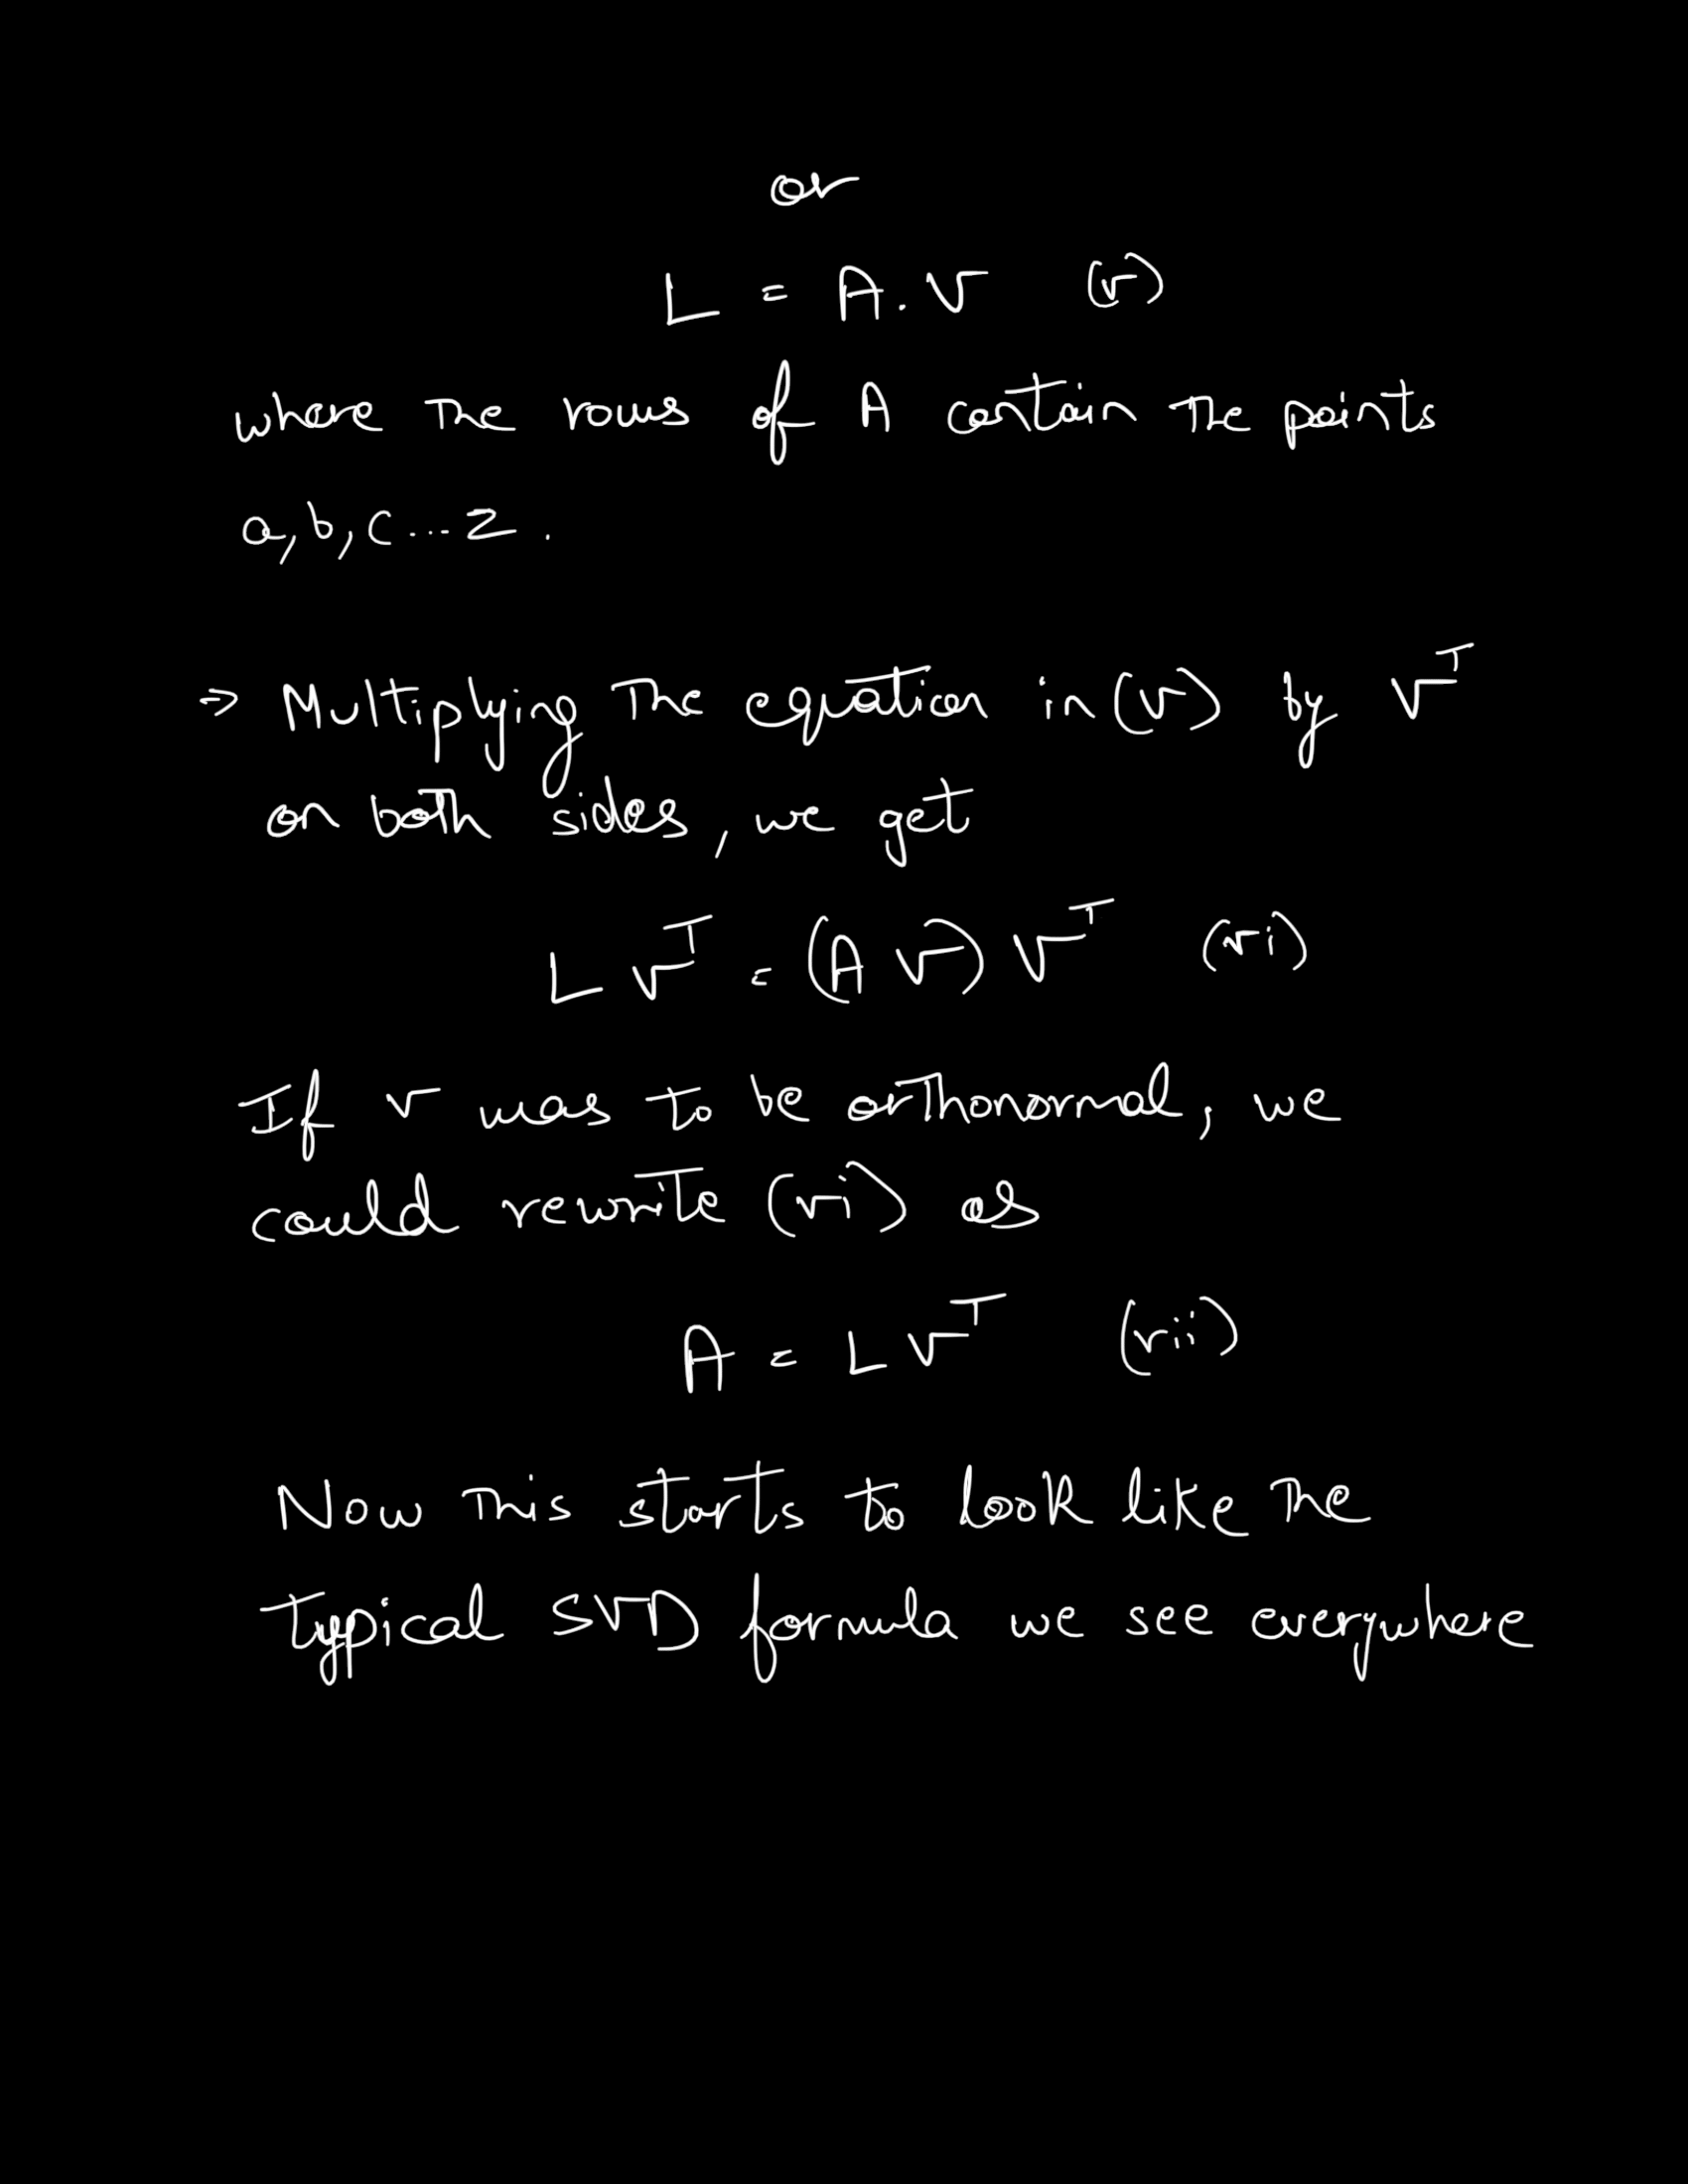 or
L = A.V (v)
where the rows of A contain the points
a, b, c ... z .
⇒ Multiplying the equation in (v) by V^T
on both sides, we get
L V^T = (A V) V^T (vi)
If V was to be orthonormal, we
could rewrite (vi) as
A = L V^T (vii)
Now this starts to look like the
typical SVD formula we see everywhere